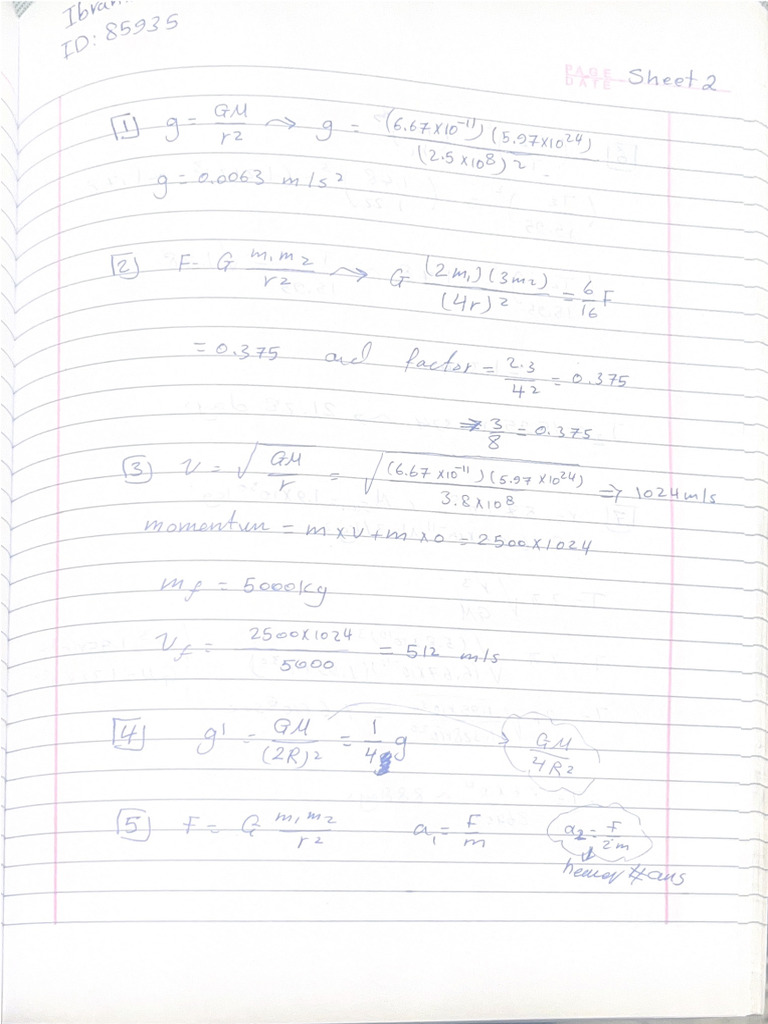 ID: 85935
PAGE
DATE
Sheet 2
[1] g = GM / r² → g = (6.67×10⁻¹¹)(5.97×10²⁴) / (2.5×10⁸)²
g = 0.0063 m/s²
[2] F = G m₁m₂ / r² → G (2m₁)(3m₂) / (4r)² = 6/16 F
= 0.375 and factor = 2.3 / 4² = 0.375
→ 3/8 = 0.375
[3] v = √(GM / r) = √((6.67×10⁻¹¹)(5.97×10²⁴) / 3.8×10⁸) ⇒ 1024 m/s
momentum = m×v+m×0 = 2500×1024
m_f = 5000kg
v_f = 2500×1024 / 5000 = 512 m/s
[4] g' = GM / (2R)² = 1/4 g → GM / 4R²
[5] F = G m₁m₂ / r² a₁ = F/m a₂ = F/2m
ans